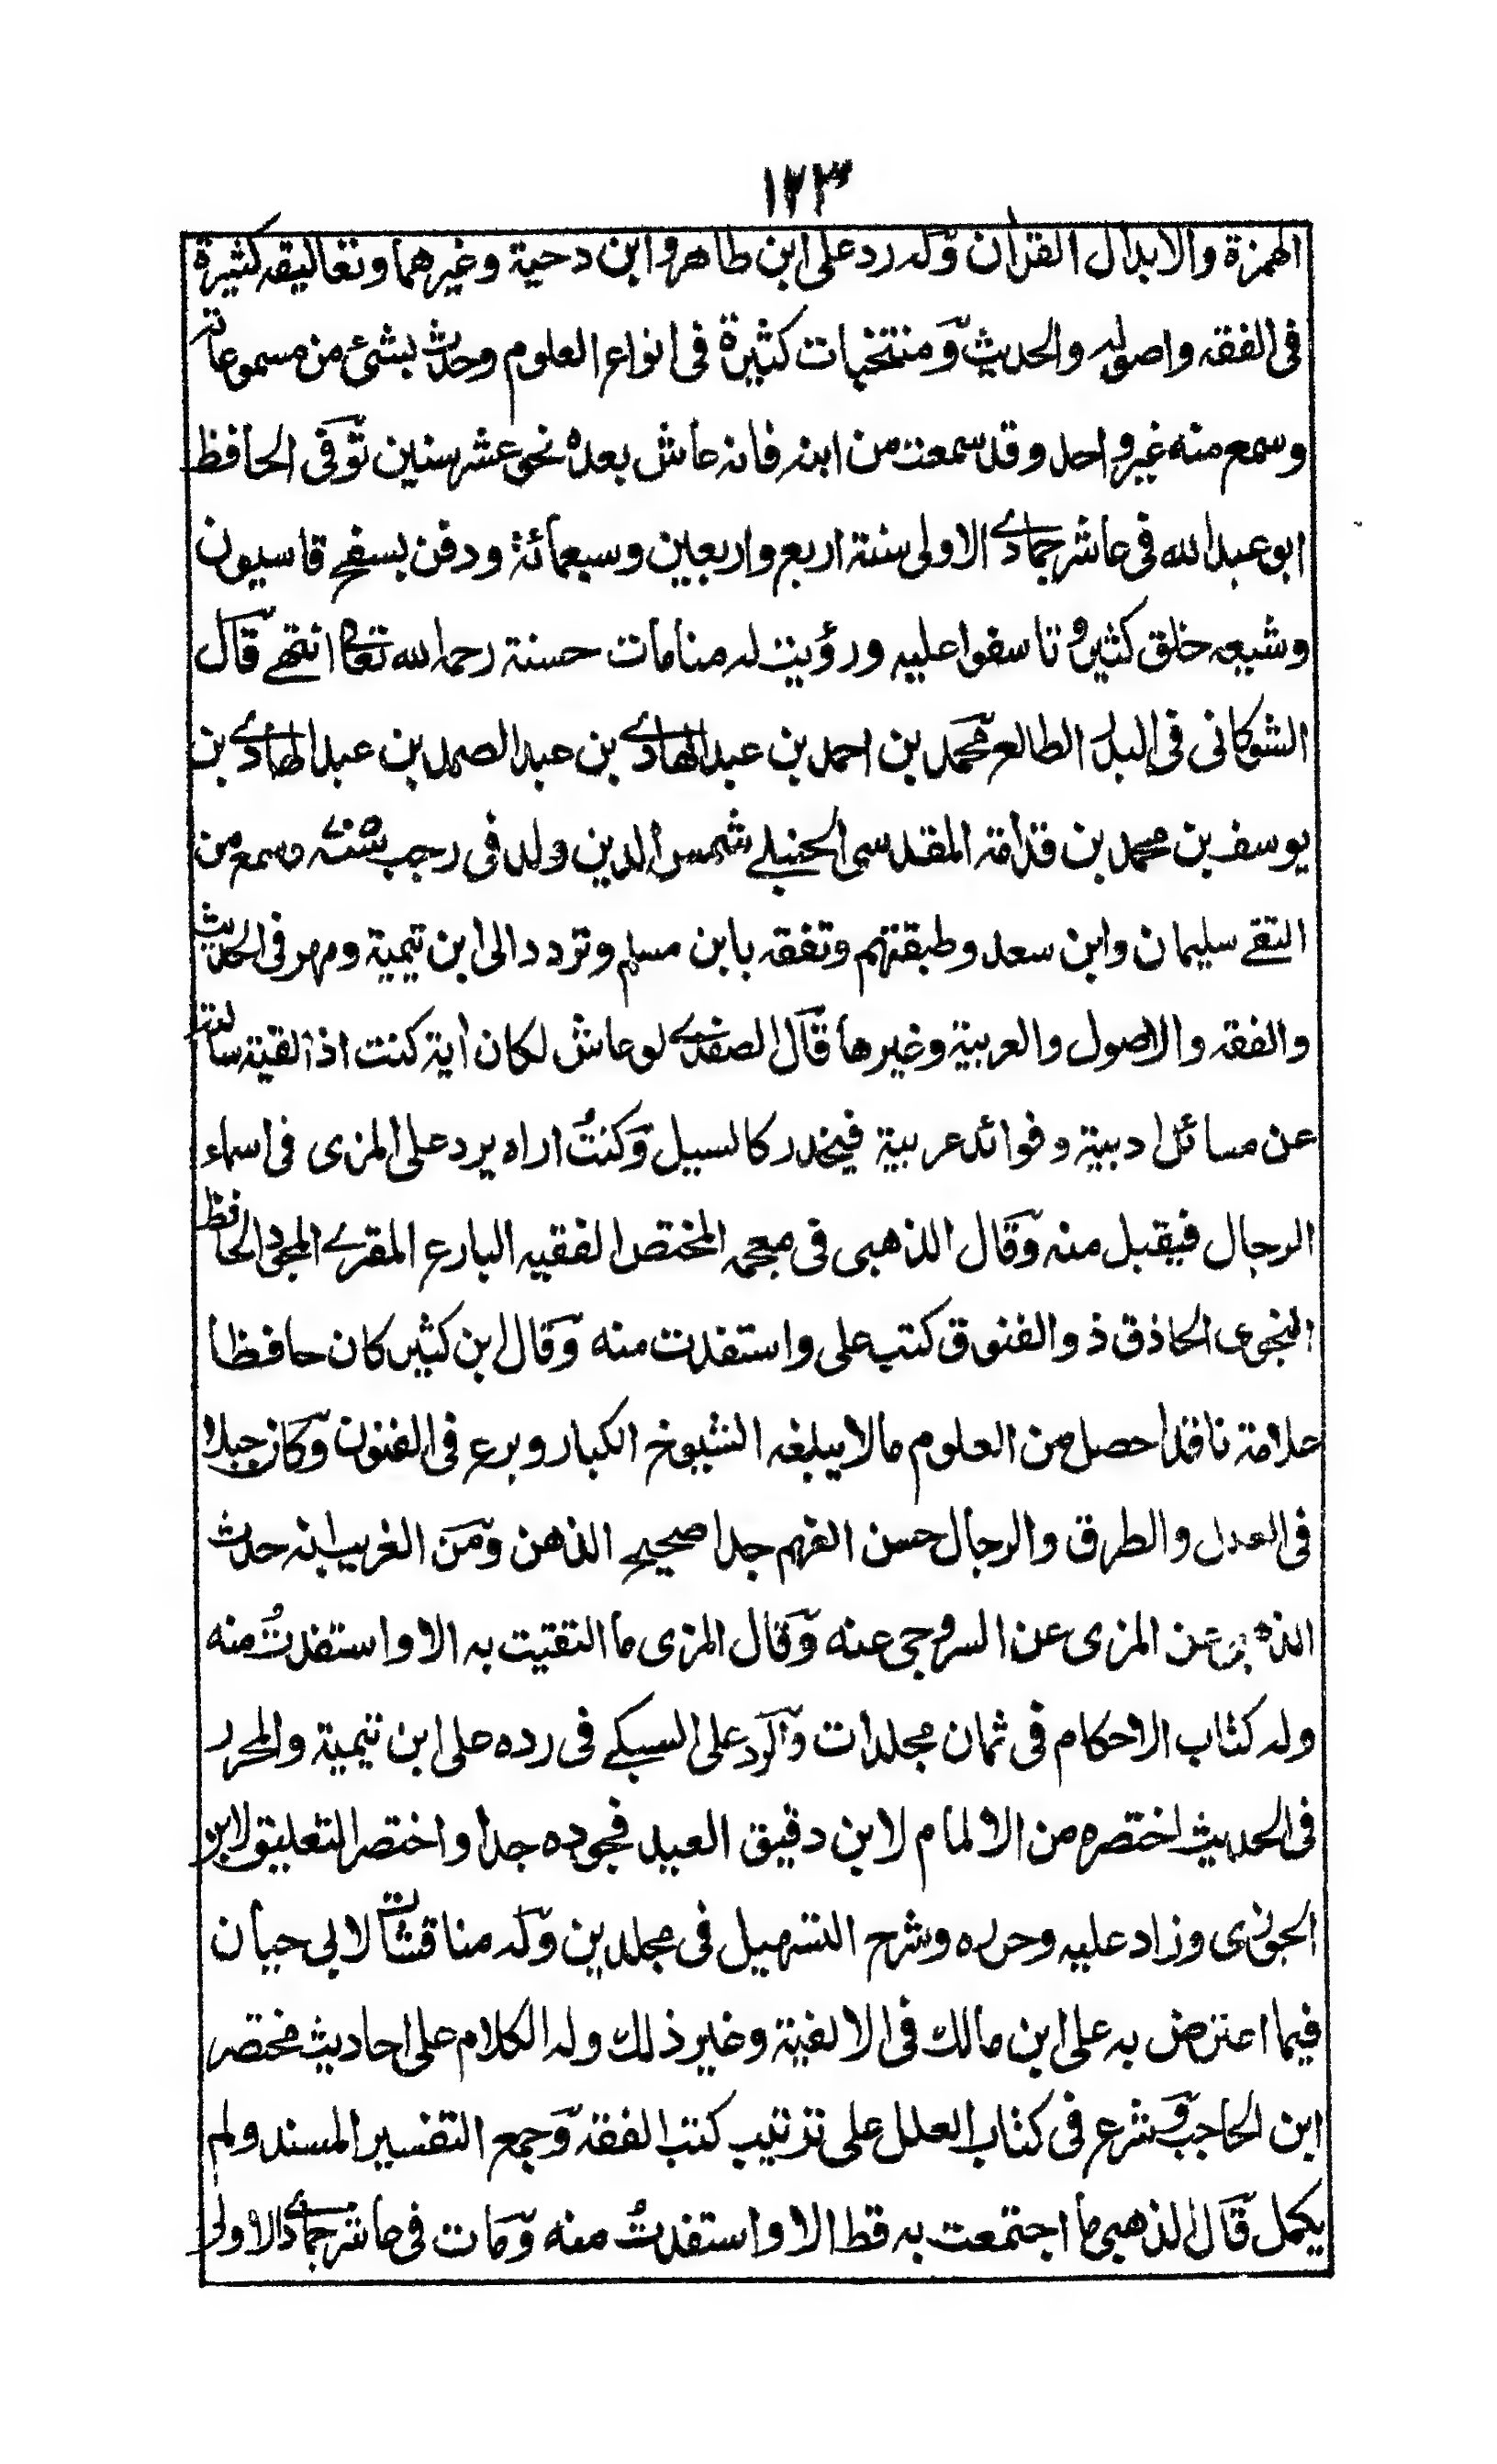 ١٢٣
الهمزة والابدال القران وله رد على ابن طاهر وابن دحية وغيرهما وتعاليقه كثيرة
فى الفقه واصوله والحديث ومنتخبات كثيرة فى انواع العلوم وحدث بشئ من مسموعاته
وسمع منه غير واحد وقد سمعت من ابنه فانه عاش بعده نحو عشر سنين توفى الحافظ
ابو عبد الله فى عاشر جمادے الاولى سنة اربع واربعين وسبعمائة ودفن بسفح قاسيون
وشيعه خلق كثير وتاسفوا عليه ورؤيت له منامات حسنة رحمه الله تعا انتهے قال
الشوكانى فى البدر الطالع محمد بن احمد بن عبد الهادے بن عبد الصمد بن عبد الهادے بن
يوسف بن محمد بن قدامة المقدسى الحنبلے شمس الدين ولد فى رجب وسمع من
التقے سليمان وابن سعد وطبقتهم وتفقه بابن مسلم وتردد الى ابن تيمية ومهر فى الحديث
والفقه والاصول والعربية وغيرها قال الصفدے لو عاش لكان اية كنت اذا لقيته سالته
عن مسائل ادبية وفوائد عربية فينحدر كالسيل وكنتُ اراه يرد على المزى فى اسماء
الرجال فيقبل منه وقال الذهبى فى معجمه المختص الفقيه البارع المقرے المجود الحافظ
النحوى الحاذق ذو الفنون كتب على واستفدت منه وقال ابن كثير كان حافظا
علامة ناقدا حصل من العلوم مالا يبلغه الشيوخ الكبار وبرع فى الفنون وكان جبلا
فى العلل والطرق والرجال حسن الفهم جدا صحيح الذهن ومن الغريب انه حدث
الذهبى عن المزى عن السروجى عنه وقال المزى ما التقيت به الا واستفدتُ منه
وله كتاب الاحكام فى ثمان مجلدات والرد على السبكے فى رده على ابن تيمية والمحرر
فى الحديث اختصره من الالمام لابن دقيق العيد فجوده جدا واختصر التعليق لابن
الجوزى وزاد عليه وحرره وشرح التسهيل فى مجلدين وله مناقشات لابى حيان
فيما اعترض به على ابن مالك فى الالفية وغير ذلك وله الكلام على احاديث مختصر
ابن الحاجب وشرع فى كتاب العلل على ترتيب كتب الفقه وجمع التفسير المسند ولم
يكمل قال الذهبى ما اجتمعت به قط الا واستفدتُ منه ومات فى عاشر جمادے الاولى